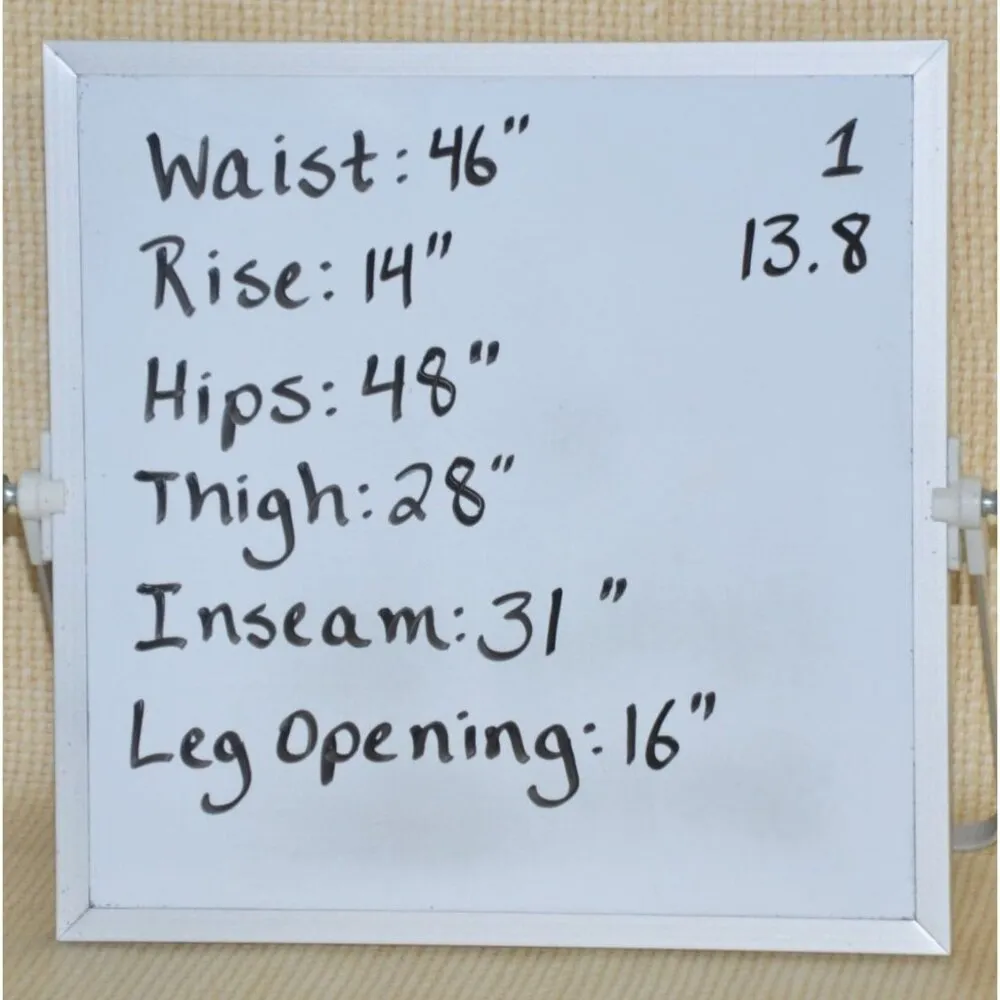 Waist: 46" 1
Rise: 14" 13.8
Hips: 48"
Thigh: 28"
Inseam: 31"
Leg Opening: 16"